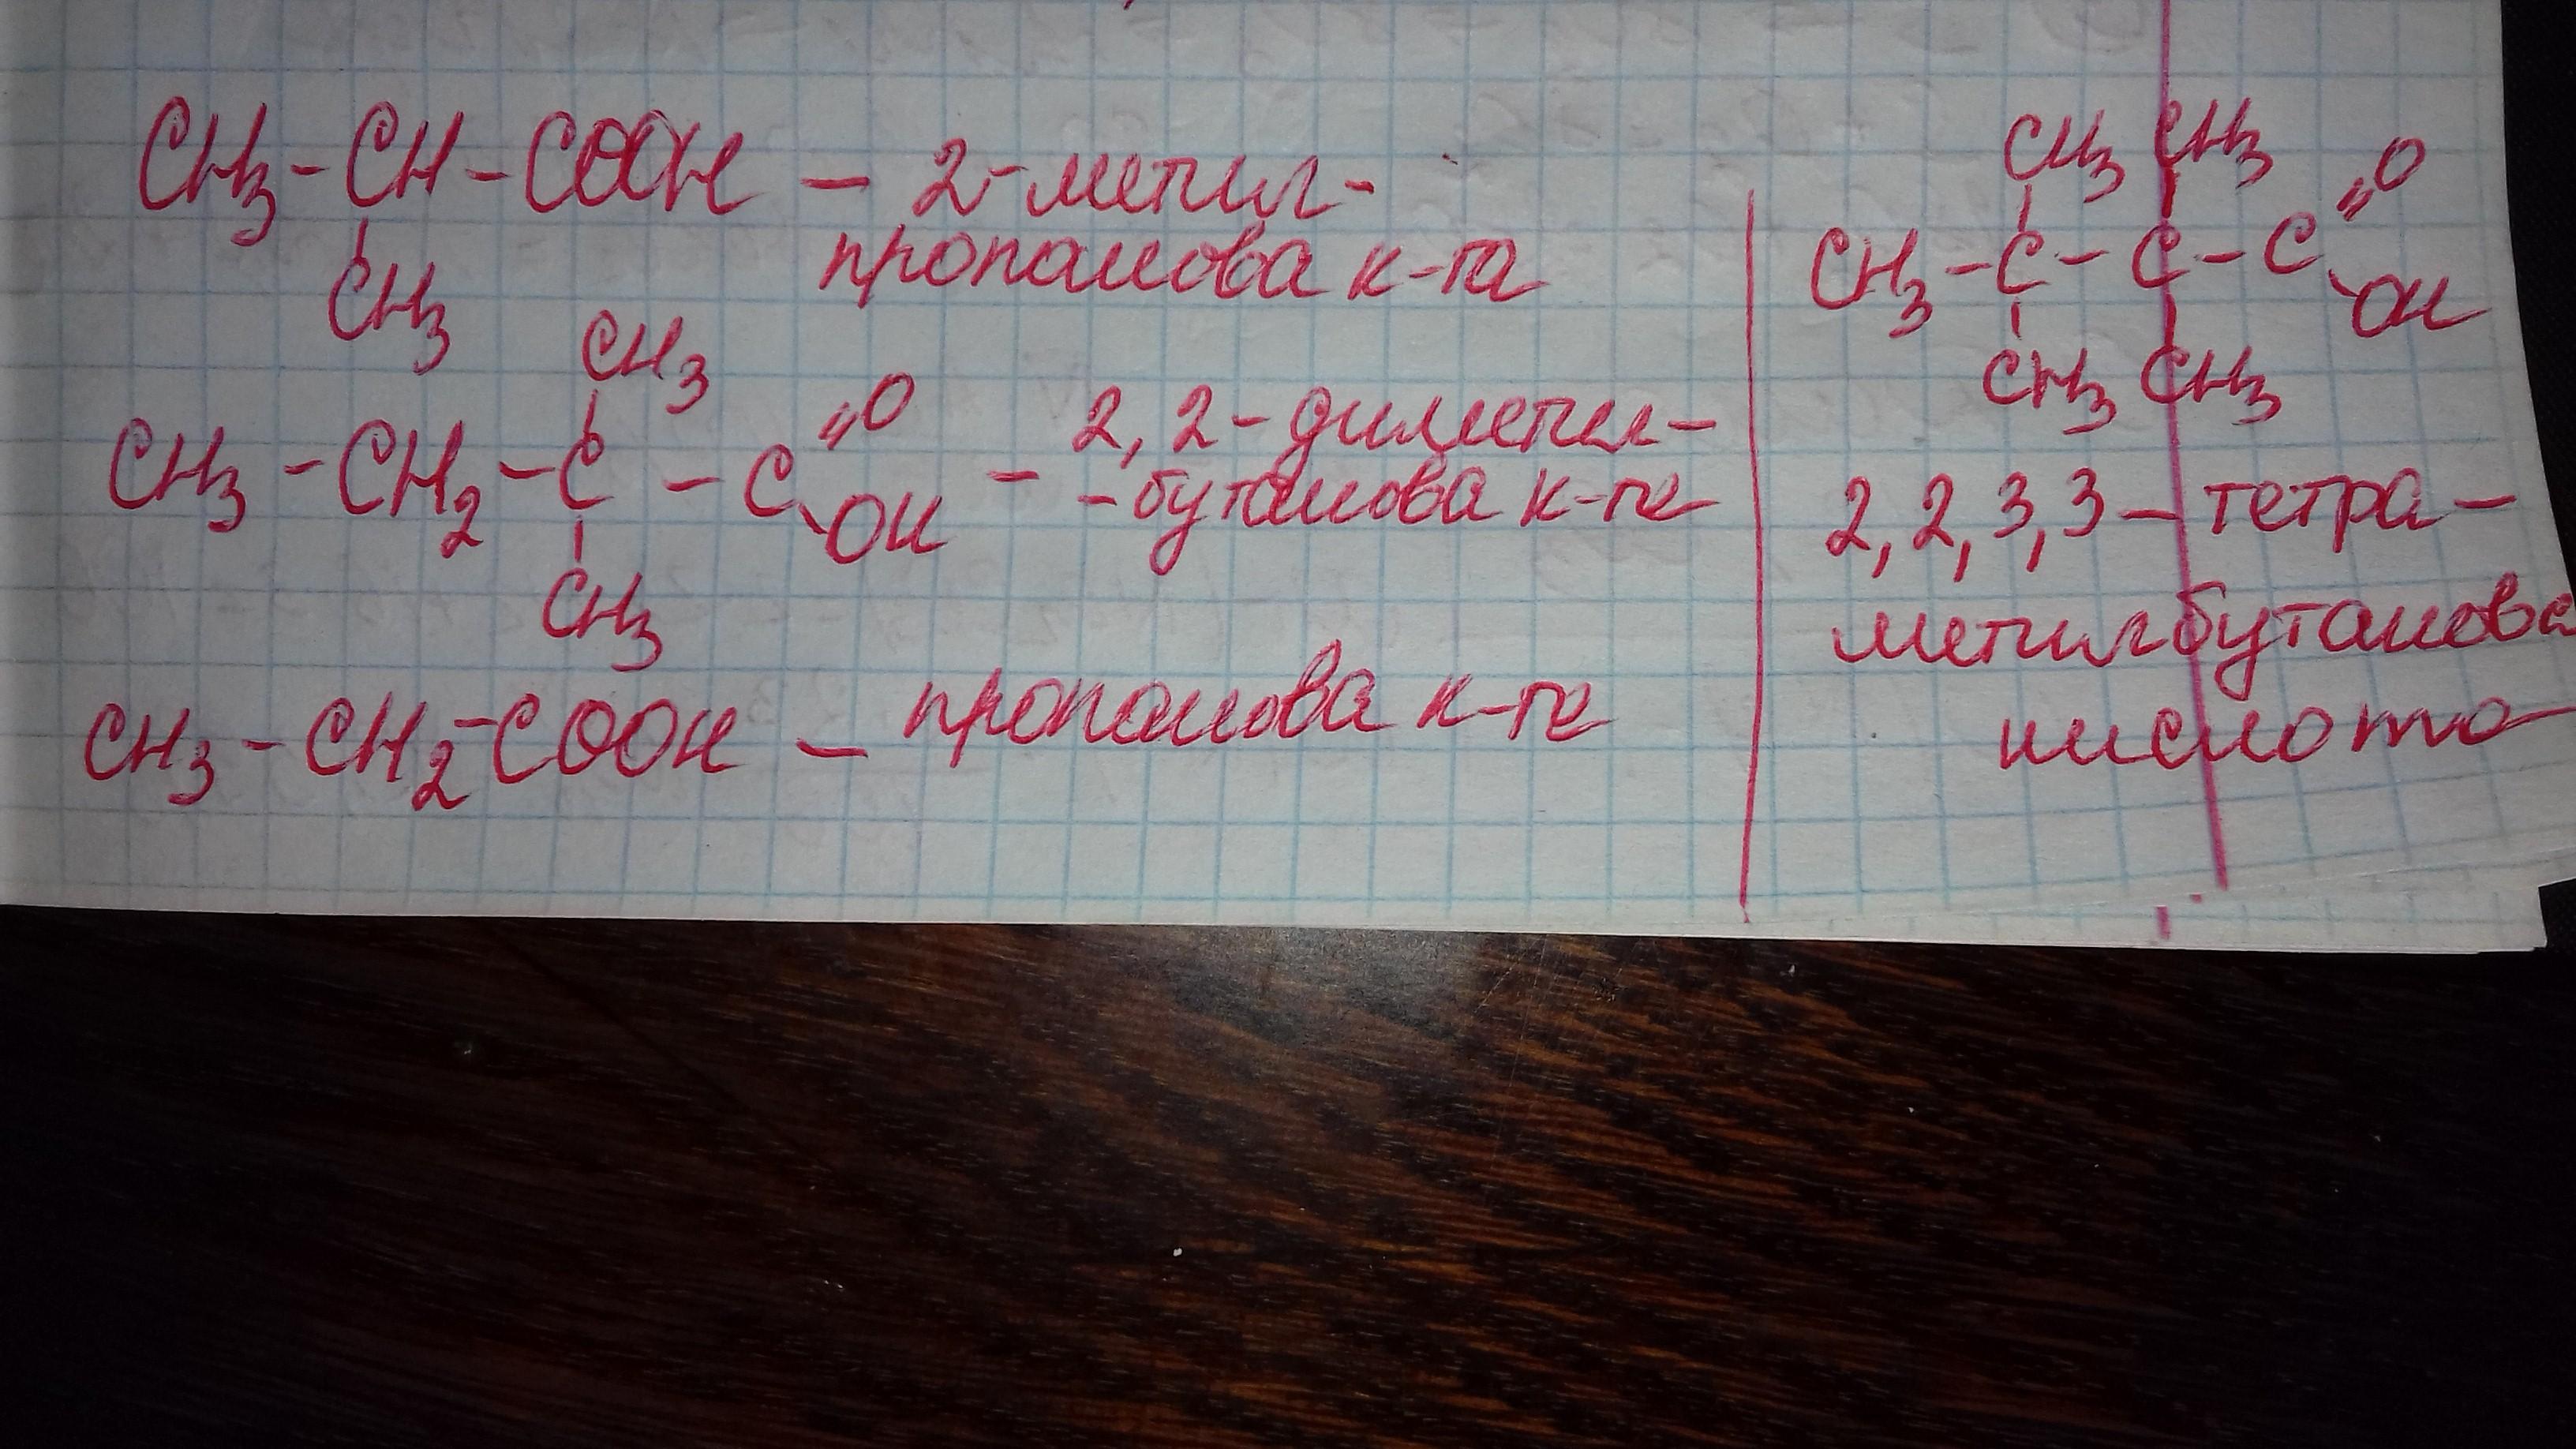 CH3 - CH - COOH - 2-метил-
пропанова к-та
CH3
CH3
CH3 - CH2 - C - C =O - 2,2-диметил-
OH -бутанова к-та
CH3
CH3 - CH2 - COOH - пропанова к-та
CH3 CH3
CH3 - C - C - C =O
OH
CH3 CH3
2,2,3,3- тетра-
метилбутанова
кислота